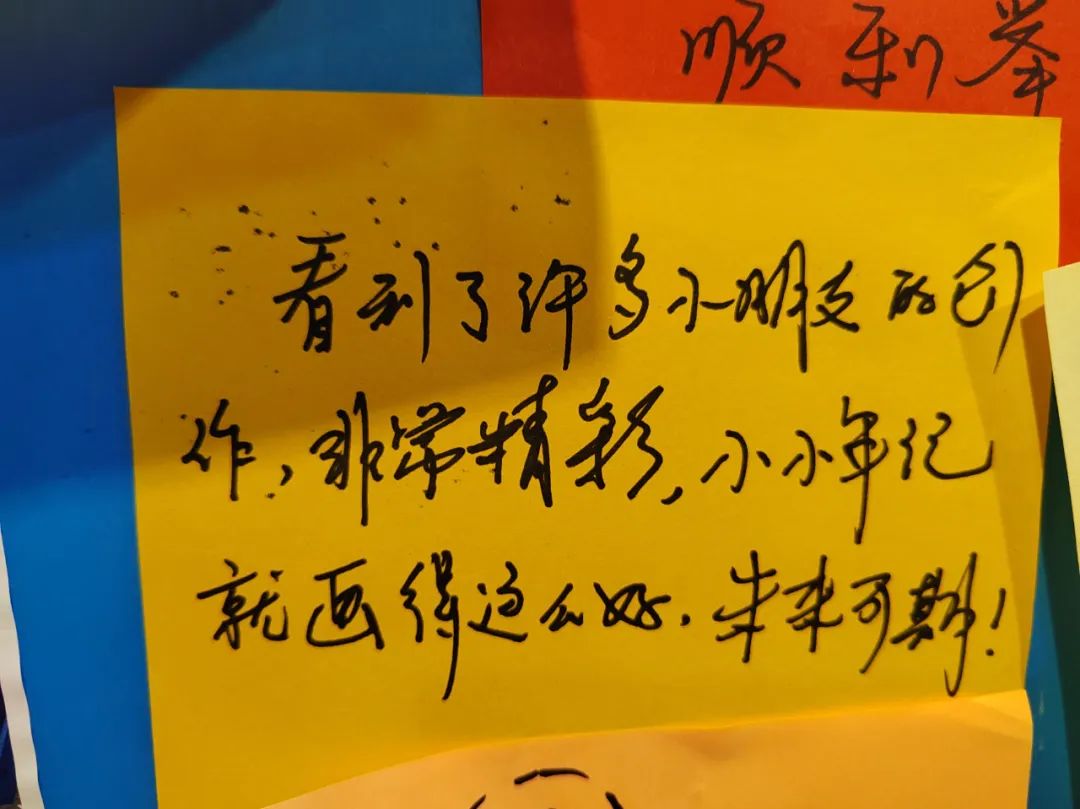 顺利举
看到了许多小朋友的创
作,非常精彩,小小年纪
就画得这么好.未来可期!